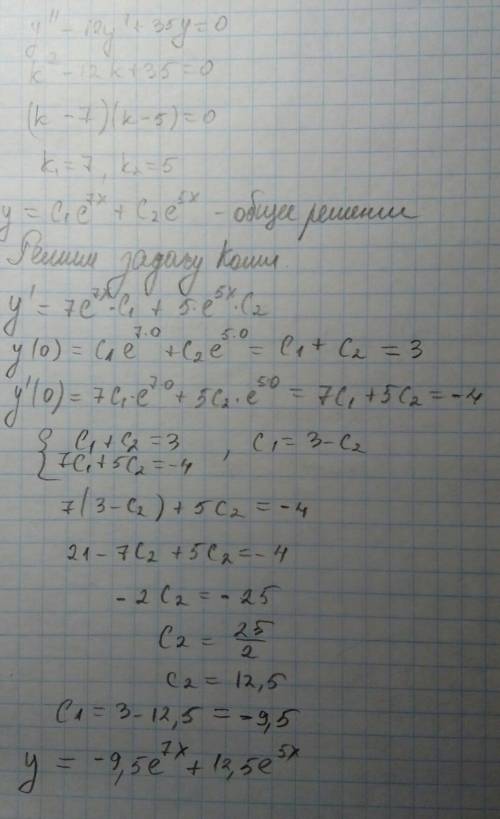 y'' - 12y' + 35y = 0
k² - 12k + 35 = 0
(k - 7)(k - 5) = 0
k₁ = 7, k₂ = 5
y = C₁e^{7x} + C₂e^{5x} - общее решении
Решим задачу Коши.
y' = 7e^{7x}·C₁ + 5·e^{5x}·C₂
y(0) = C₁e^{7·0} + C₂e^{5·0} = C₁ + C₂ = 3
y'(0) = 7C₁·e^{7·0} + 5C₂·e^{5·0} = 7C₁ + 5C₂ = -4
{ C₁ + C₂ = 3 , C₁ = 3 - C₂
7C₁ + 5C₂ = -4
7(3 - C₂) + 5C₂ = -4
21 - 7C₂ + 5C₂ = -4
-2C₂ = -25
C₂ = 25/2
C₂ = 12,5
C₁ = 3 - 12,5 = -9,5
y = -9,5e^{7x} + 12,5e^{5x}